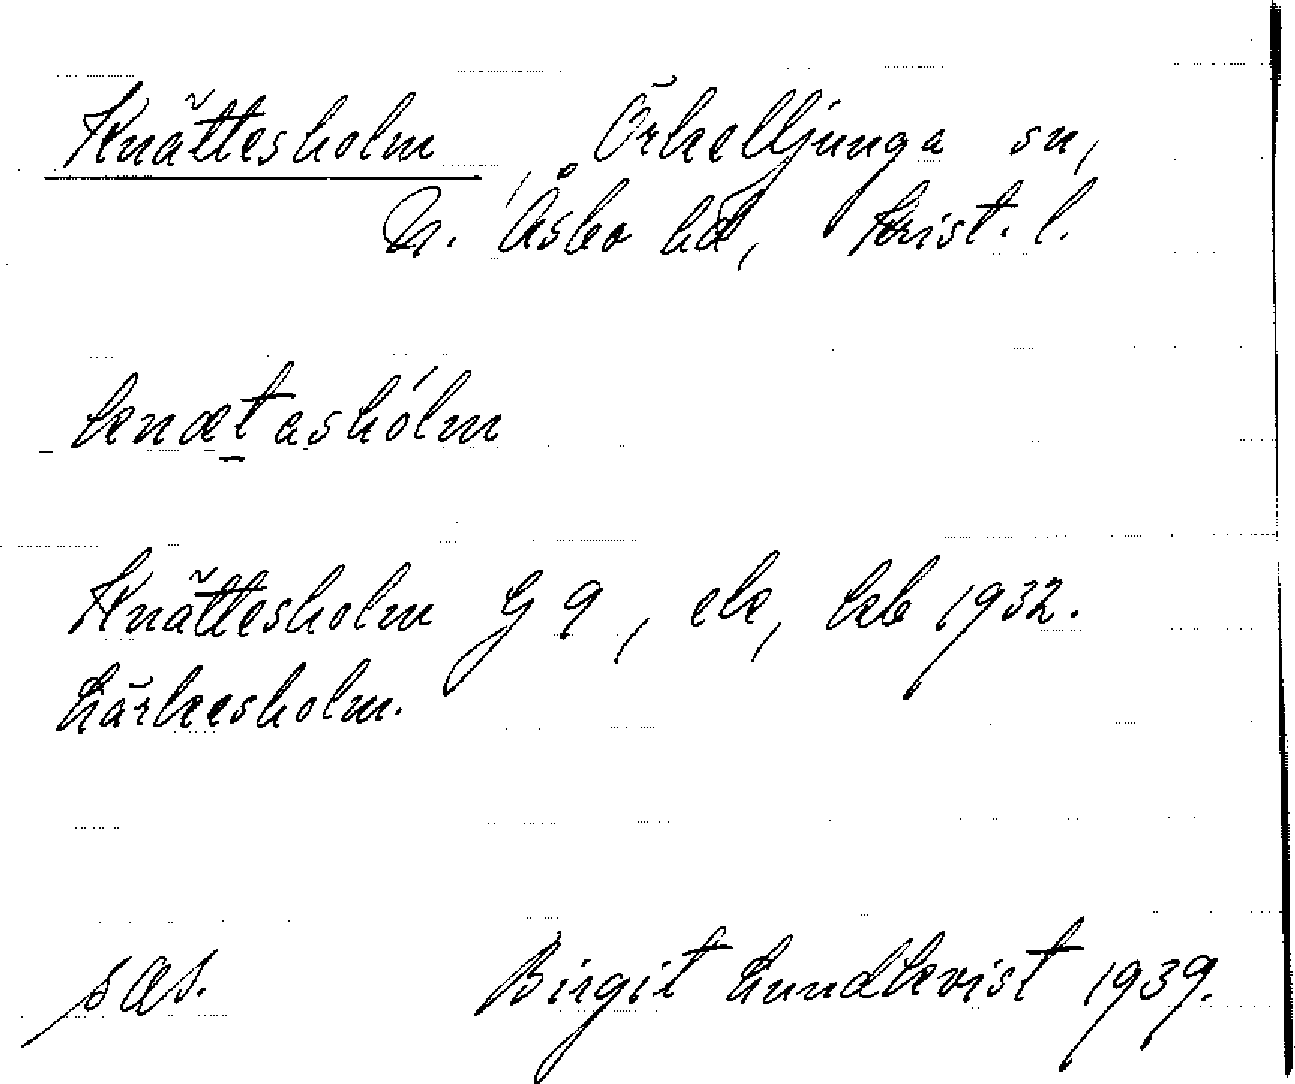 Knättesholm, Örkelljunga sn,
N. Åsbo hd, Krist. l.
knætashólm
Knättesholm G 9, ek, kb 1932.
Lärkesholm.
sæs. Birgit Lundkvist 1939.